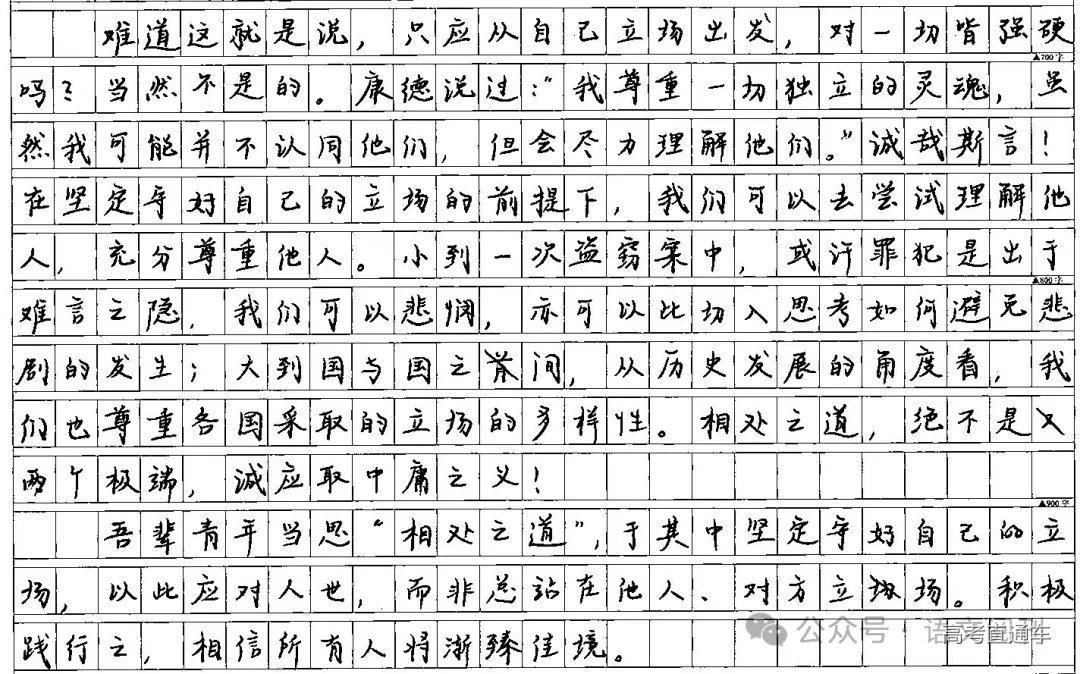 难道这就是说，只应从自己立场出发，对一切皆强硬
▲700字
吗？当然不是的。康德说过：“我尊重一切独立的灵魂，虽
然我可能并不认同他们，但会尽力理解他们。”诚哉斯言！
在坚定守好自己的立场的前提下，我们可以去尝试理解他
人，充分尊重他人。小到一次盗窃案中，或许罪犯是出于
▲800字
难言之隐，我们可以悲悯，亦可以此切入思考如何避免悲
剧的发生；大到国与国之间，从历史发展的角度看，我
们也尊重各国采取的立场的多样性。相处之道，绝不是又
两个极端，诚应取中庸之义！
▲900字
吾辈青年当思“相处之道”，于其中坚定守好自己的立
场，以此应对人世，而非总站在他人、对方立场。积极
践行之，相信所有人将渐臻佳境。
公众号
高考直通车